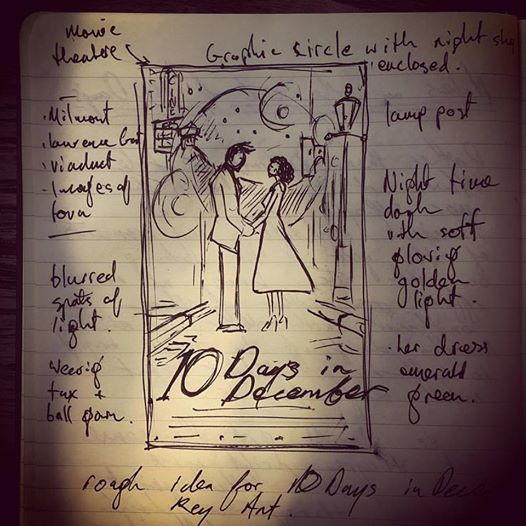 movie
theatre
Graphic Circle with night sky
enclosed.
lamp post
viaduct
Images of
town
Night time
with soft
glowing
golden
light.
blurred
spots of
light.
wearing
tux +
ball gown.
her dress
emerald
green.
10 Days in
December
rough idea for 10 Days in Dece
Key Art.